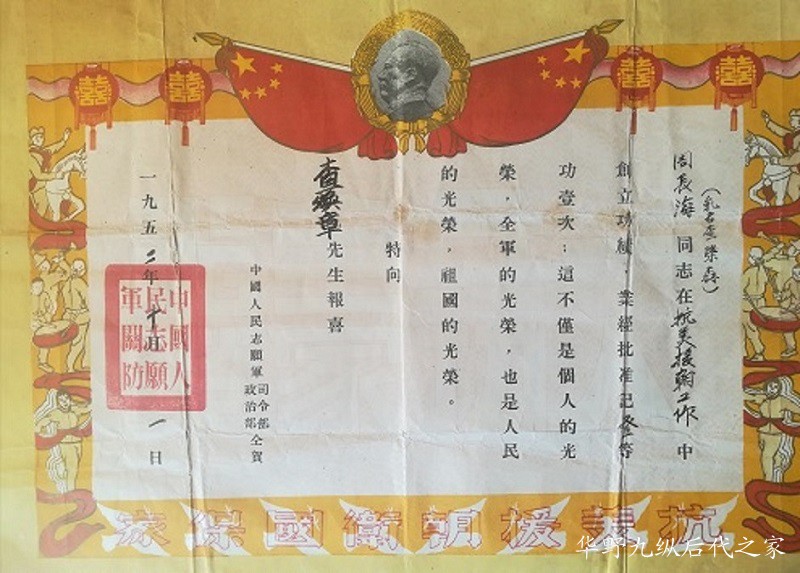 囍
囍
囍
囍
(乳名查榮喜)
周長海同志在抗美援朝工作中
創立功績,業經批准記叁等
功壹次;這不僅是個人的光
榮,全軍的光榮,也是人民
的光榮,祖國的光榮。
特向
查煥章先生報喜
中國人民志願軍司令部政治部仝賀
一九五二年十月一日
中國人
民志願
軍關防
抗美援朝衛國保家
华野九纵后代之家